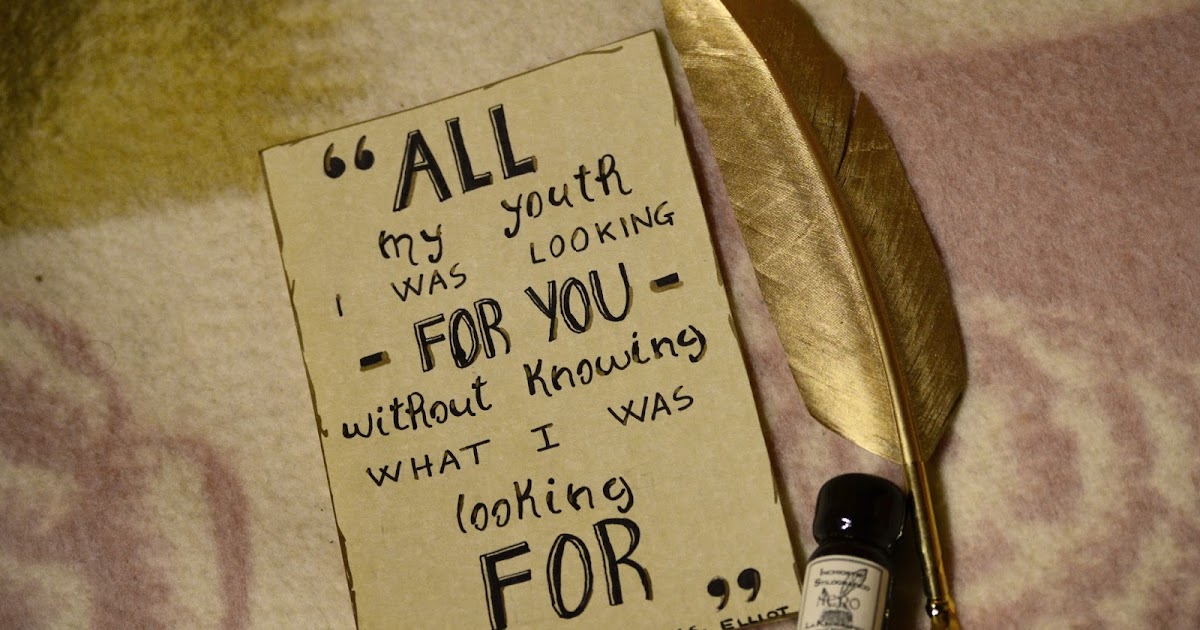 “ ALL
my youth
I WAS LOOKING
- FOR YOU -
without knowing
WHAT I WAS
looking
FOR ”
S. ELLIOT
INCHIOSTRO
STILOGRAFICO
NERO